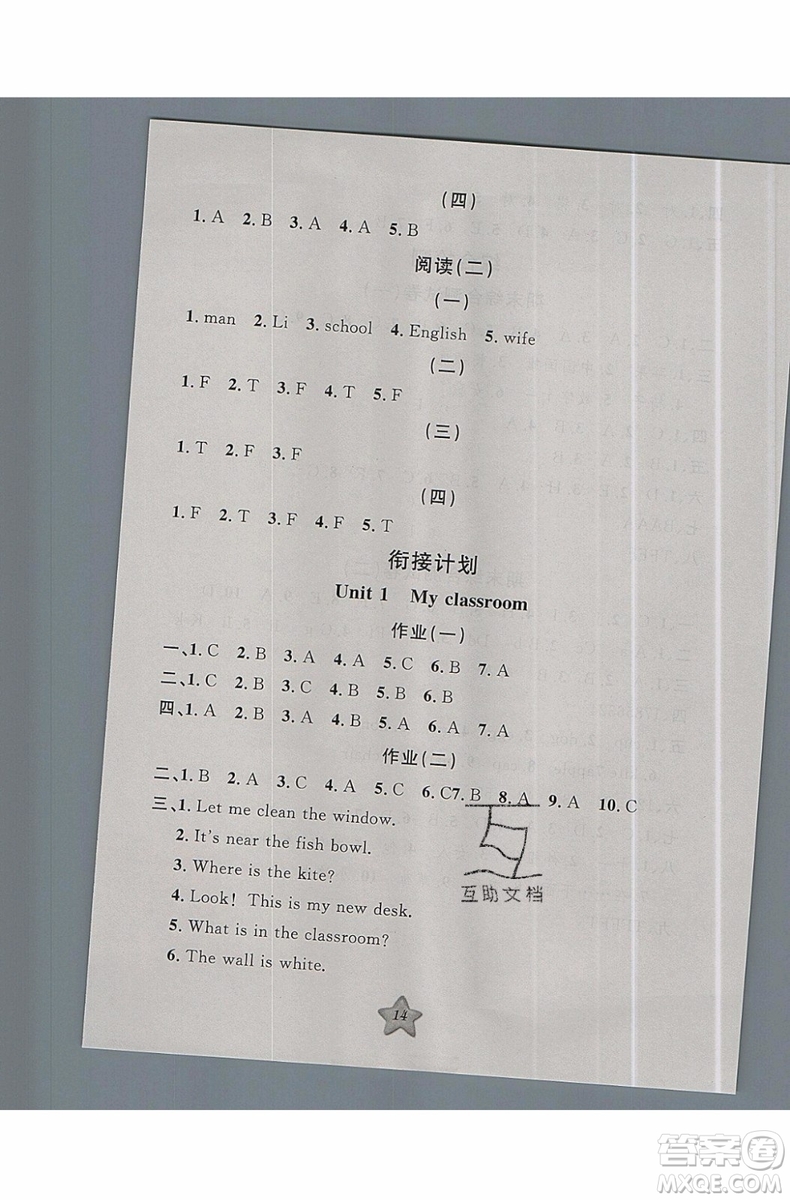 (四)
1. A 2. B 3. A 4. A 5. B
阅读(二)
(一)
1. man 2. Li 3. school 4. English 5. wife
(二)
1. F 2. T 3. F 4. T 5. F
(三)
1. T 2. F 3. F
(四)
1. F 2. T 3. F 4. F 5. T
衔接计划
Unit 1 My classroom
作业(一)
一、1. C 2. B 3. A 4. A 5. C 6. B 7. A
二、1. C 2. C 3. C 4. B 5. B 6. B
四、1. A 2. B 3. A 4. B 5. A 6. A 7. A
作业(二)
二、1. B 2. A 3. C 4. A 5. C 6. C7. B 8. A 9. A 10. C
三、1. Let me clean the window.
2. It's near the fish bowl.
3. Where is the kite?
4. Look! This is my new desk.
5. What is in the classroom?
6. The wall is white.
互助文档
14
答案圈
MXQE.COM